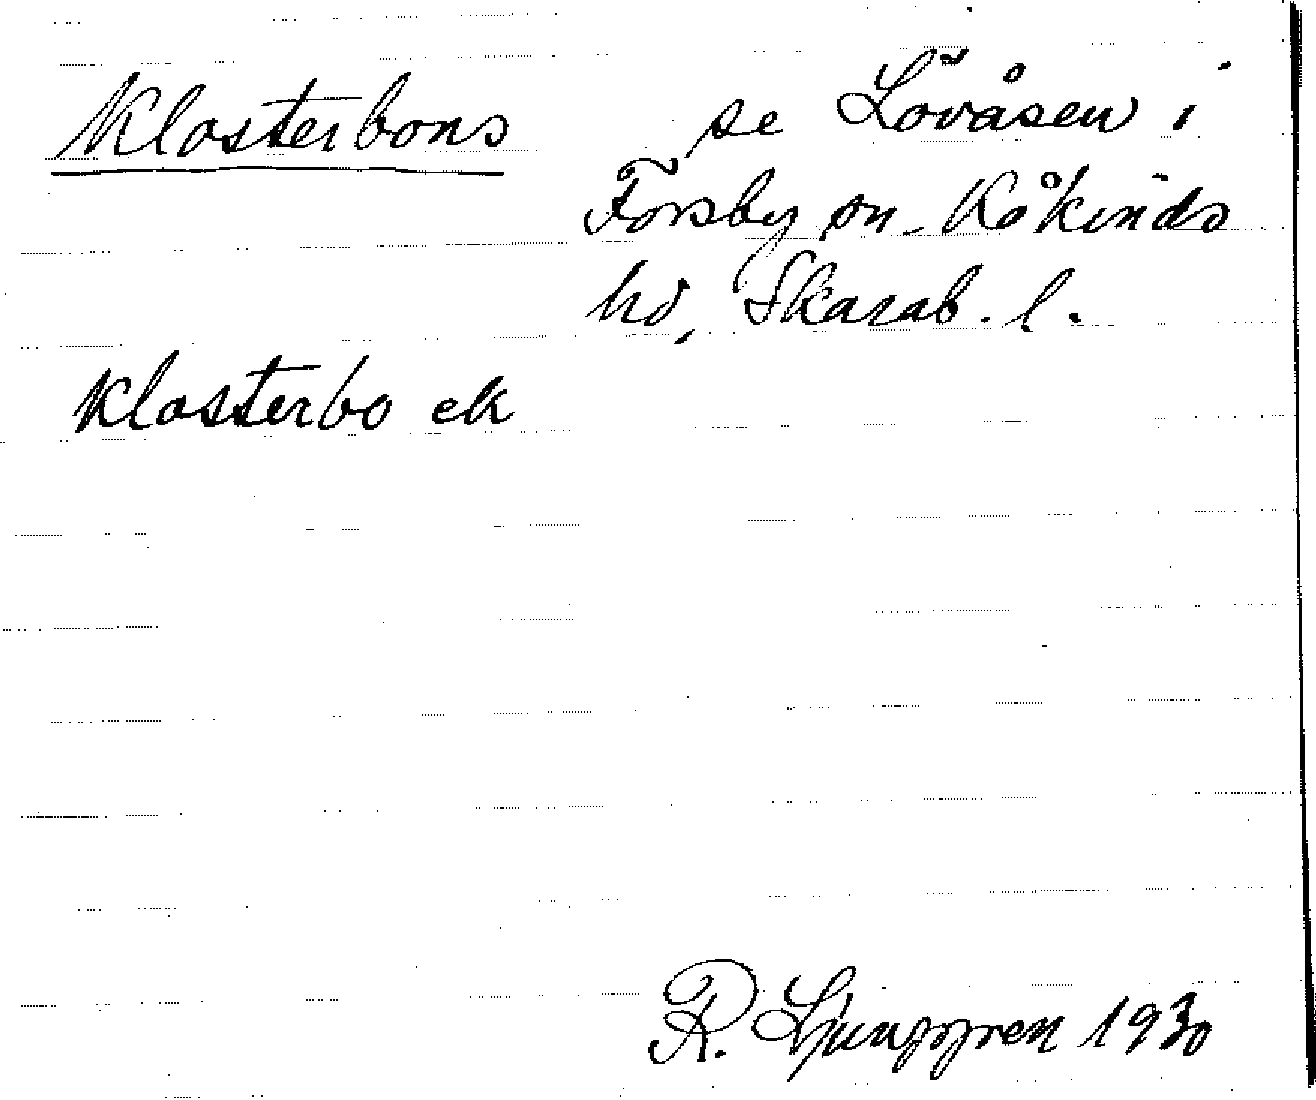 Klosterbons se Lövåsen i
Forsby sn. Kåkinds
hd, Skarab. l.
Klosterbo ek
R. Ljunggren 1930